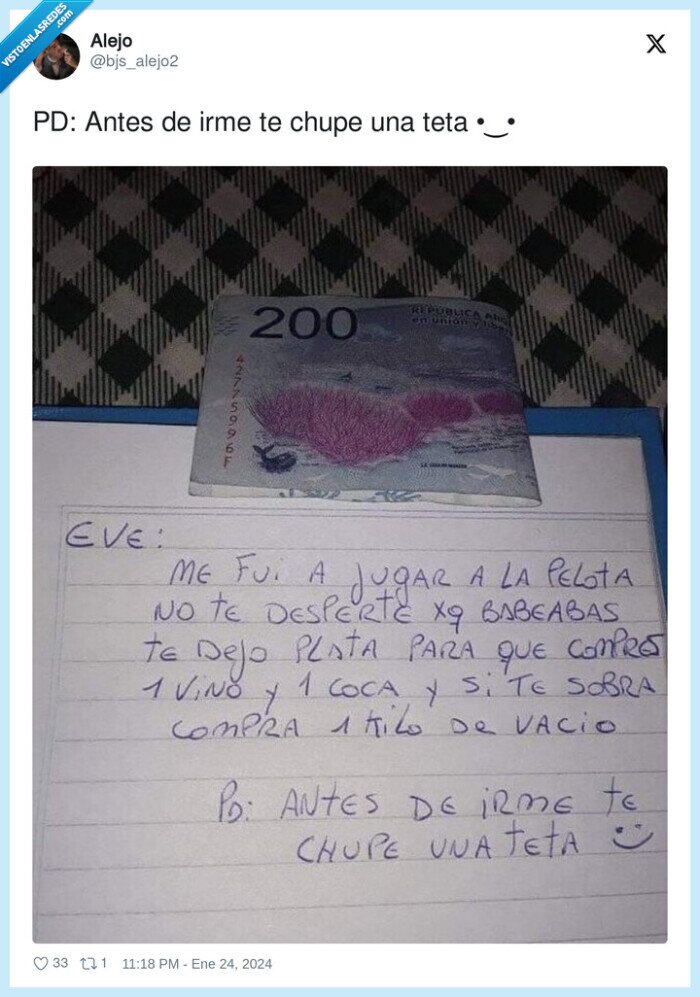 VISTOENLASREDES
.com
Alejo
@bjs_alejo2
X
PD: Antes de irme te chupe una teta •‿•
200
REPÚBLICA
en unión y
42775996F
EVE:
ME FUI A JUGAR A LA PELOTA
NO TE DESPERTÉ XQ BABEABAS
TE DEJO PLATA PARA QUE COMPRES
1 VINO Y 1 COCA Y SI TE SOBRA
COMPRA 1 KILO DE VACIO
PD: ANTES DE IRME TE
CHUPE UNA TETA :)
33 1 11:18 PM - Ene 24, 2024